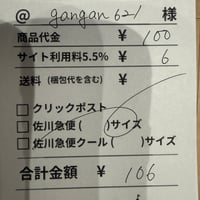 @ gangan621 様
商品代金 ¥ 100
サイト利用料5.5% ¥ 6
送料 (梱包代を含む) ¥
□ クリックポスト
□ 佐川急便 ( )サイズ
□ 佐川急便クール ( )サイズ
合計金額 ¥ 106